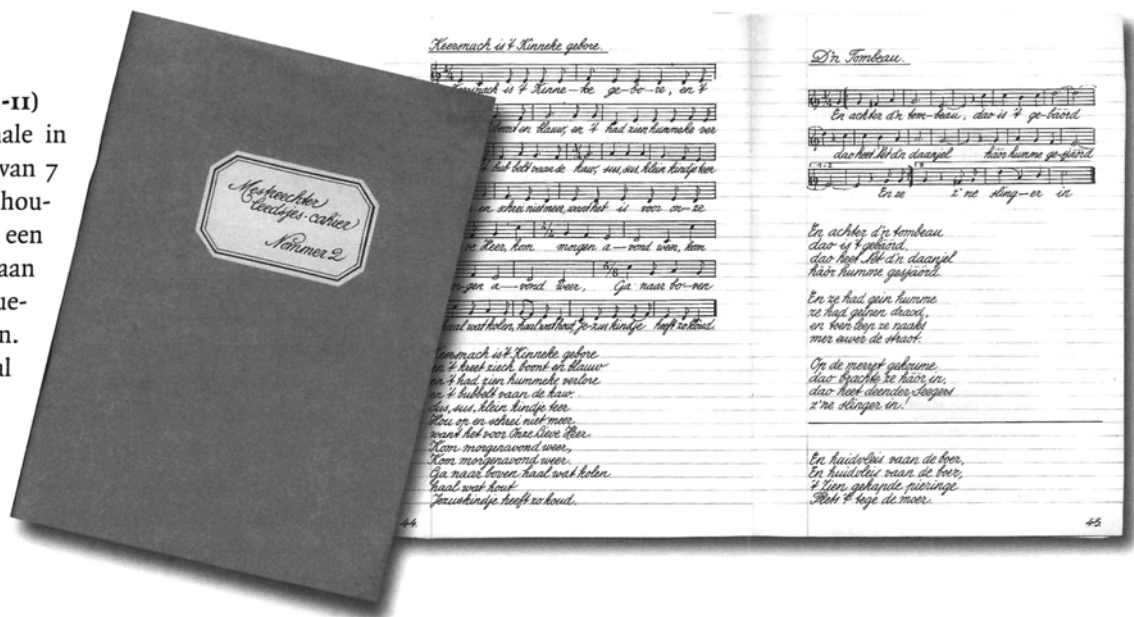 -11)
nale in
van 7
hou-
een
aan
ue-
n.
al
Mestreechter
leedsjes-cahier
Nómmer 2
Keersnach is 't Kinneke gebore.
Keersnach is 't Kinne-ke ge-bo-re, en 't
boont en blauw, en 't had zien hummeke ver
bub belt vaan de kaw, sus, sus, klein kindje teer
en schrei niet meer, want het is voor on-ze
ve Heer, kom morgen a-vond weer, kom
gen a-vond weer, Ga naar bo-ven
haal wat kolen, haal wat hout, Je-zus kindje heeft zo koud.
Keersnach is 't Kinneke gebore
en 't kreet ziech boont en blauw
en 't had zien hummeke verlore
en 't bubbelt vaan de kaw.
Sus, sus, klein kindje teer
Hou op en schrei niet meer
want het voor Onze Lieve Heer.
Kom morgenavond weer,
Kom morgenavond weer.
Ga naar boven haal wat kolen
haal wat hout
Jezuskindje heeft zo koud.
44.
D'n Tombeau.
En achter d'n tom-beau, dao is 't ge-bäörd
dao heet Net d'n daanjel häör humme ge-sjäörd
En ze z'ne sling-er in
En achter d'n tombeau
dao is 't gebäörd,
dao heet Net d'n daanjel
häör humme gesjäörd.
En ze had gein humme
ze had geinen draod,
en toen leep ze naaks
mer euver de straot.
Op de merret gekoume,
dao brachte ze häör in,
dao heet deender Seegers
z'ne slinger in!
En huidvleis vaan de boer,
En huidvleis vaan de boer,
't Zien gekapde pieringe
Plets 't tege de moer.
45.